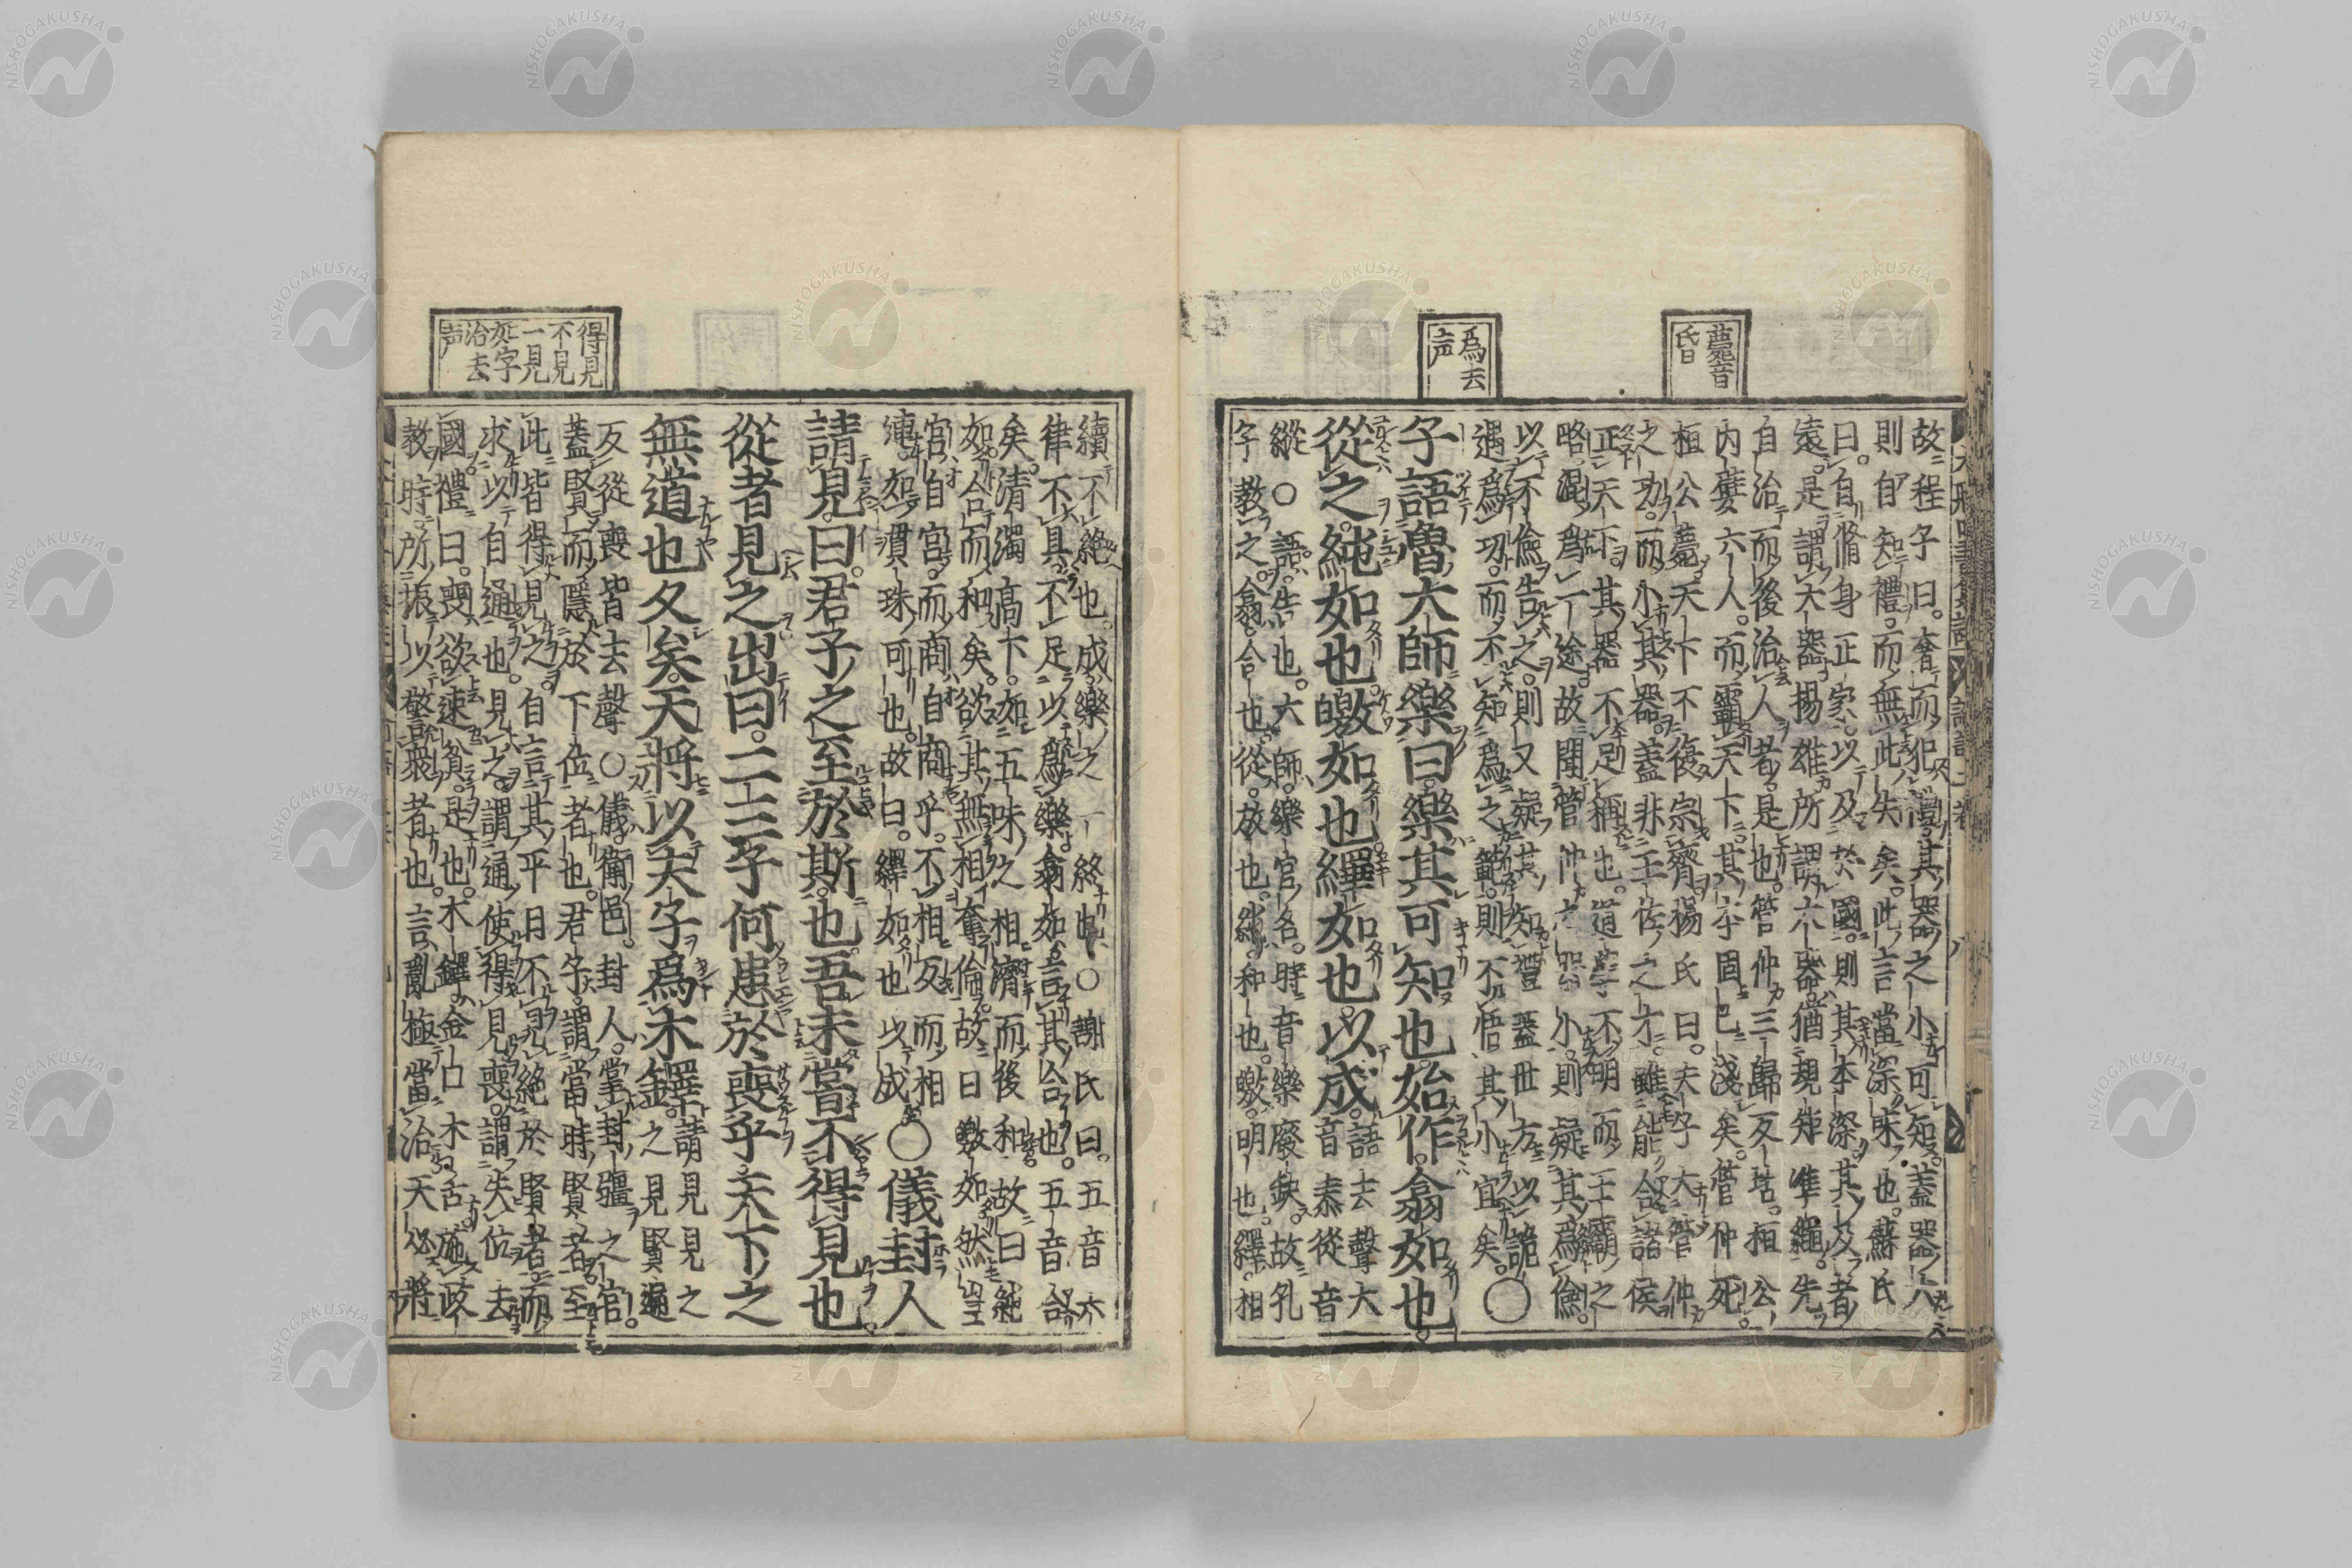 薨音
昏
爲去
声
故程子曰。奢而犯禮。其器之小可知。蓋器大
則自知禮。而無此失矣。此言當深味也。蘇氏
曰。自脩身正家。以及於國。則其本深。其及者
遠。是謂大器。揚雄所謂大器。猶規矩準繩。先
自治而後治人者。是也。管仲三歸反坫。桓公
内嬖六人。而霸天下。其本固已淺矣。管仲死。
桓公薨。天下不復宗齊。楊氏曰。夫子大管仲
之功。而小其器。蓋非王佐之才。雖能合諸侯
正天下。其器不足稱也。道學不明。而王霸之
略。混爲一途。故聞管仲之器小。則疑其爲儉。
以不儉告之。則又疑其知禮。蓋世方以詭
遇爲功。而不知爲之範。則不悟其小宜矣。○
子語魯大師樂曰。樂其可知也。始作。翕如也。
從之。純如也。皦如也。繹如也。以成。語去聲大
音泰從音
縱○語。告也。大師。樂官名。時音樂廢缺。故孔
子教之。翕。合也。從。放也。純。和也。皦。明也。繹。相
得見
不見
一見
如字
治去
声
續不絶也。成。樂之一終也○謝氏曰。五音六
律不具。不足以爲樂。翕如。言其合也。五音合
矣。清濁高下。如五味之相濟而後和。故曰純
如。合而和矣。欲其無相奪倫。故曰皦如。然豈
宮自宮。而商自商乎。不相反而相
連。如貫珠可也。故曰。繹如也以成○儀封人
請見。曰。君子之至於斯也。吾未嘗不得見也。
從者見之。出曰。二三子何患於喪乎。天下之
無道也久矣。天將以夫子爲木鐸。請見見之
之見賢遍
反從喪皆去聲○儀。衞邑。封人。掌封疆之官。
蓋賢而隱於下位者也。君子。謂當時賢者。至
此皆得見之。自言其平日不見絶於賢者。而
求以自通也。見之。謂通使得見。喪。謂失位去
國。禮曰。喪欲速貧。是也。木鐸。金口木舌。施政
教時。所振以警衆者也。言亂極當治。天必將